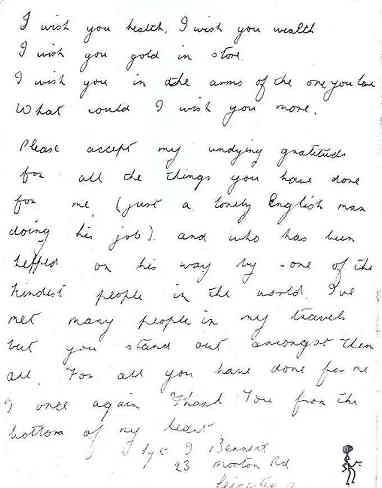 I wish you health, I wish you wealth
I wish you gold in store
I wish you in the arms of the one you love
What could I wish you more.
Please accept my undying gratitude
for all the things you have done
for me, (just a lonely English man
doing his job). and who has been
helped on his way by - one of the
kindest people in the world. I've
met many people in my travels
but you stand out amongst them
all. For all you have done for me
I once again Thank You from the
bottom of my heart
Bennett
23 Morton Rd